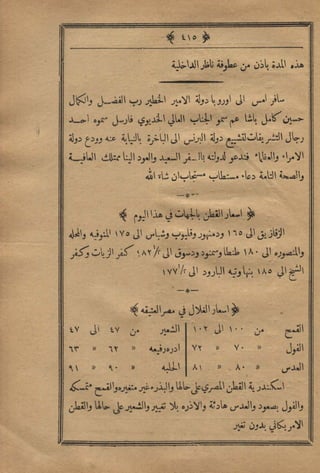 ﴿ ٤١٥ ﴾
هذه المدة باذن من عطوفة ناظر الداخلية
سافر امس الى اوروبا دولة الامير الخطير رب الفضل والكمال
حسين كامل باشا عم سمو الجناب العالي الخديوي فارسل سموه احد
رجال التشريفات لتشييع دولة البرنس الى الباخرة بالنيابة عنه وودع دولة
الامراء والعظماء فندعو لدولته بالسفر السعيد والعود الينا ممتلك العافية
والصحة التامة دعاء مستطاب مستجاب ان شاء الله
﴿ اسعار القطن بالجهات في هذا اليوم ﴾
الزقازيق الى ١٦٥ ودمنهور وقليوب وشباس الى ١٧٥ المنوفيه والمحله
والمنصوره الى ١٨٠ طنطا وسمنود ودسوق الى ١٨٢½ كفر الزيات وكفر
الشيخ الى ١٨٥ بنها وتيه البارود الى ١٧٧½
﴿ اسعار الغلال في مصر العتيقه ﴾
القمح من ١٠٠ الى ١٠٢ الشعير من ٤٧ الى ٤٧
الفول » ٧٠ » ٧٢ اذره رفيعه » ٦٢ » ٦٣
العدس » ٨٠ » ٨١ الحلبه » ٩٠ » ٩١
اسكندرية القطن المصري على حالها والبذره غير متغيره والقمح متمسكه
والفول بصعود والعدس هادئة والاذره بلا تغيير والشعير على حالها والقطن
الامريكاني بدون تغير